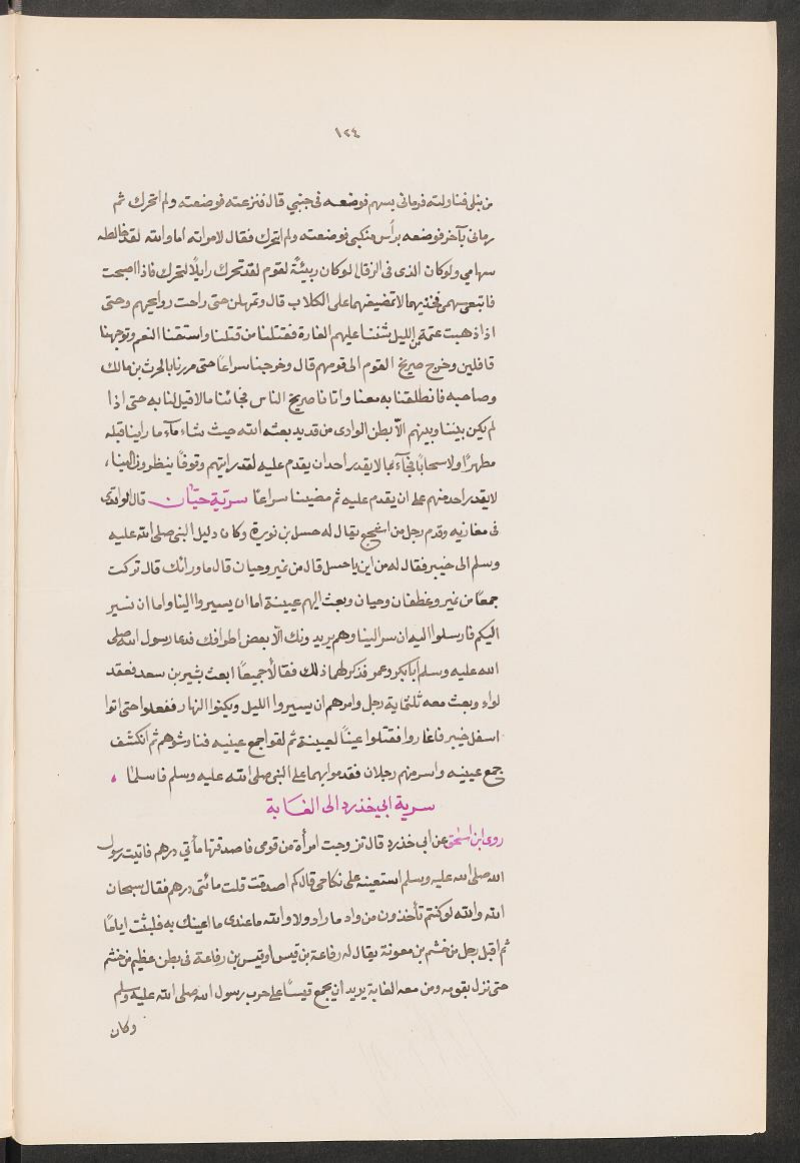 ١٢٤
من نبلى فناولته فرمانى بسهم فوضعه فى جنبي قال فنزعته فوضعته ولم اتحرك ثم
رمانى بآخر فوضعه برأس منكبى فوضعته ولم اتحرك فقال لامراته اما والله لقد خالطه
سهامي ولو كان الذى فى الزقال لو كان ربيئة لقوم لقد تحرك زايلا لتحرك فاذا اصبحت
فاتبعى سهمى فخذيهما لا تمضيغهما على الكلاب قال وتمهلن حتى راحت روايحهم وحتى
اذا ذهبت عتمة من الليل شننا عليهم الغارة فقتلنا من قتلنا واستقنا النعم وتوجهنا
قافلين وخرج صريخ القوم الى قومهم قال وخرجنا سراعا حتى مررنا بالحرث بن مالك
وصاحبه فانطلقنا به معنا واتانا صريخ الناس فجائنا مالا قبل لنا به حتى اذا
لم يكن بيننا وبينهم الا بطن الوادى من قديد بعثه الله حيث شاء مآء ما راينا قبله
مطهرًا ولا سحابا فجآء بما لا يقدر احد ان يقدم عليه لقد رايتهم وقوفا ينظرون الينا،
لا يقدر احد منهم على ان يقدم عليه ثم مضينا سراعا سرية حيّان قال الواقدى
فى مغازيه وقدم رجل من اشجع يقال له حسل بن نويرة وكان دليل النبى صلى الله عليه
وسلم الى خيبر فقال له من اين يا حسل قال من نمير وحيان قال ما ورائك قال تركت
جمعًا من نمير وغطفان وحيان وبعث اليهم عيينة اما ان يسيروا الينا واما ان نسير
اليكم فارسلوا اليه ان سر الينا وهم يريدونك الا بعض اطرافك فدعا رسول الله صلى
الله عليه وسلم ابا بكر وعمر فذكر لهما ذلك فقالا جميعًا ابعث بشير بن سعد فعقد
لواء وبعث معه ثلثماية رجل وامرهم ان يسيروا الليل ويكنوا النهار ففعلوا حتى اتوا
اسفل خيبر فاغاروا فقتلوا عينًا لعيينة ثم لقوا جمع عيينه فناوشوهم ثم انكشف
جمع عيينه واسر منهم رجلان فقدموا بهما على النبى صلى الله عليه وسلم فاسلما ،
سرية ابى خذرد الى الغابة
روى ابن اسحق عن ابى خذرد قال تزوجت امرأة من قومى فاصدقتها مأتي درهم فاتيت رسول
الله صلى الله عليه وسلم استعينه على نكاحى قال كم اصدقت قلت مائتى درهم فقال سبحان
الله والله لو كنتم تأخذون من واد ما زاد ولا والله ما عندى ما اعينك به فلبثت اياما
ثم اقبل رجل من خشم بن معونة يقال له رفاعة بن قيس او قيس بن رفاعة فى بطن عظيم من خشم
حتى نزل بقومه ومن معه الغابة يريد ان يجمع قيسًا على حرب رسول الله صلى الله عليه وسلم
وكان